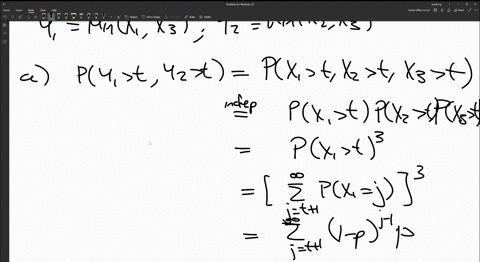 Y₁ = Min(X₁, X₃) ; Y₂ = Min(X₂, X₃)
a) P(Y₁>t, Y₂>t) = P(X₁>t, X₂>t, X₃>t)
indep
= P(X₁>t)P(X₂>t)P(X₃>t)
= P(X₁>t)³
= [ ∑_{j=t+1}^{∞} P(X₁=j) ]³
= ∑_{j=t+1}^{∞} (1-p)^{j-1} p